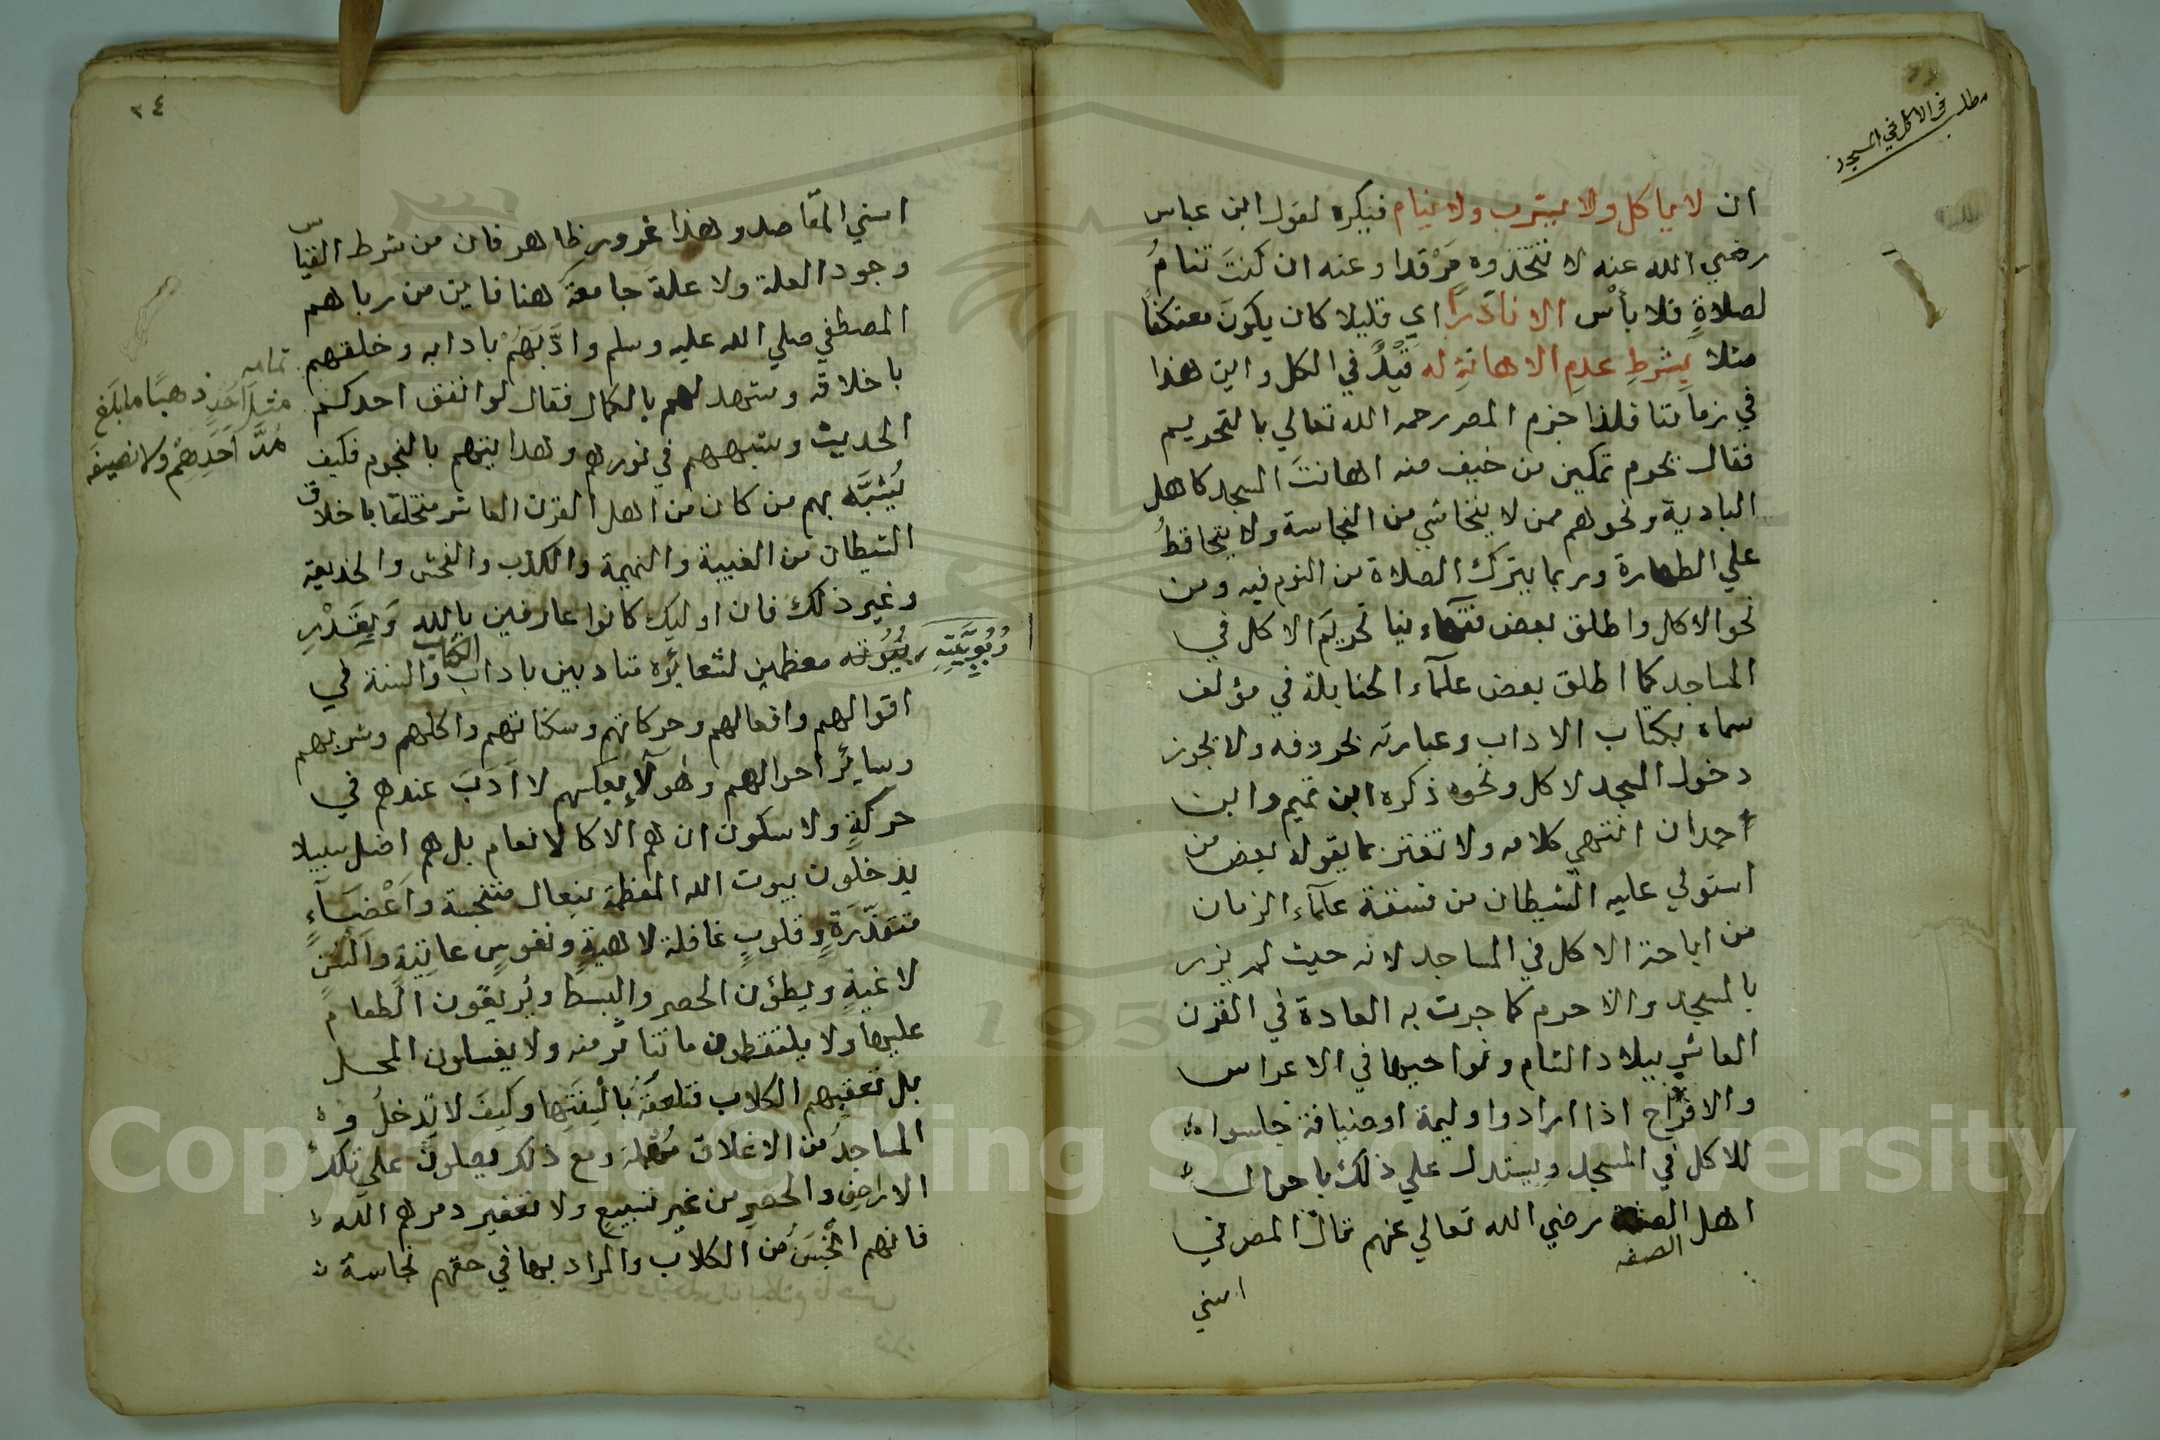 مطلب في الاكل في المسجد
ان لا ياكل ولا يشرب ولا ينام فيكره لقول ابن عباس
رضي الله عنه لا تتخذوه مَرْقدا وعنه ان كنتَ تنامُ
لصلاةٍ فلا بأس الا نادرا اي قليلا كان يكونَ معتكفا
مثلا بشرطِ عدمِ الاهانةِ له قَيْدٌ في الكل واين هذا
في زماننا فلذا جزم المصر رحمه الله تعالي بالتحريم
فقال يحرم تمكين من خيف منه اهانتَ المسجد كاهل
البادية ونحوهم ممن لا يتحاشي من النجاسة ولا يتحافظُ
علي الطهارة وربما يترك الصلاة من النوم فيه ومن
نحو الاكل واطلق بعض فقهاءنا تحريمَ الاكل في
المساجد كما اطلق بعض علمآء الحنابلة في مؤلف
سماه بكتاب الاداب وعبارته بحروفه ولا يجوز
دخول المسجد لاكل ونحوه ذكره ابن تميم وابن
احمدان انتهي كلامه ولا تغتر بما يقوله بعض من
استولي عليه الشيطان من فسقة علمآء الزمان
من اباحة الاكل في المساجد لانه حيث لم يزر
بالمسجد والا حرم كما جرت به العادة في القرن
العاشر ببلاد الشام ونواحيها في الاعراس
والافراح اذا ارادوا وليمة او ضيافة جلسوا
للاكل في المسجد ويستدل علي ذلك باحوال
اهل الصفة رضي الله تعالي عنهم قال المصر في
الصفه
اسني
٣٤
اسني المقاصد وهذا غرور ظاهر فان من شرط القياس
وجود العلة ولا علة جامعة هنا فاين من رباهم
المصطفي صلي الله عليه وسلم وادَّبَهُمْ بادابه وخلقهم
باخلاقه وشهد لهم بالكمال فقال لو انفق احدكم
الحديث وشبههم في نورهم وهدايتهم بالنجوم فكيف
يُشَبَّه بهم من كان من اهل القرن العاشر متخلقا باخلاق
الشيطان من الغيبة والنميمة والكذب والفحش والخديعة
وغير ذلك فان اوليك كانوا عارفين بالله وَبِقَدْرِ
بُيُوته معظمين لشعائره متادبين باداب الكتاب والسنة في
اقوالهم وافعالهم وحركاتهم وسكناتهم واكلهم وشربهم
وسايُر احوالهم وهولآء بعكسهم لا اَدَبَ عندهم في
حركةٍ ولا سكون ان هم الا كالانعام بل هم اضل سبيلا
يدخلون بيوت الله المعظمة بنعال متنجسة وَاَعْضَآءٍ
متقذّرَةٍ وقلوبٍ غافلة لاهيةٍ ونفوسٍ عاتيةٍ والسُنٍ
لاغيةٍ ويطؤن الحصر والبسط ويُريقون الطعام
عليها ولا يلتقطون ما تناثر منه ولا يغسلون المحل
بل تعقبهم الكلاب فتلعقه بألسِنَتِها وكيف لا تدخلُ و
المساجدُ من الاغلاق مُهْملة ومع ذلك يصلون علي تلك
الاراضي والحصر من غير تسبيع ولا تعفير دمرهم الله
فانهم انْجَسُ من الكلاب والمراد بها في حقهم نجاسة
تمامه
مثل اُحَدٍ ذهبًا ما بلغ
مُدَّ اَحَدِهِمْ ولا نصيفه
رُبُوبيَّتِهِ
Copyright © King Saud University
195